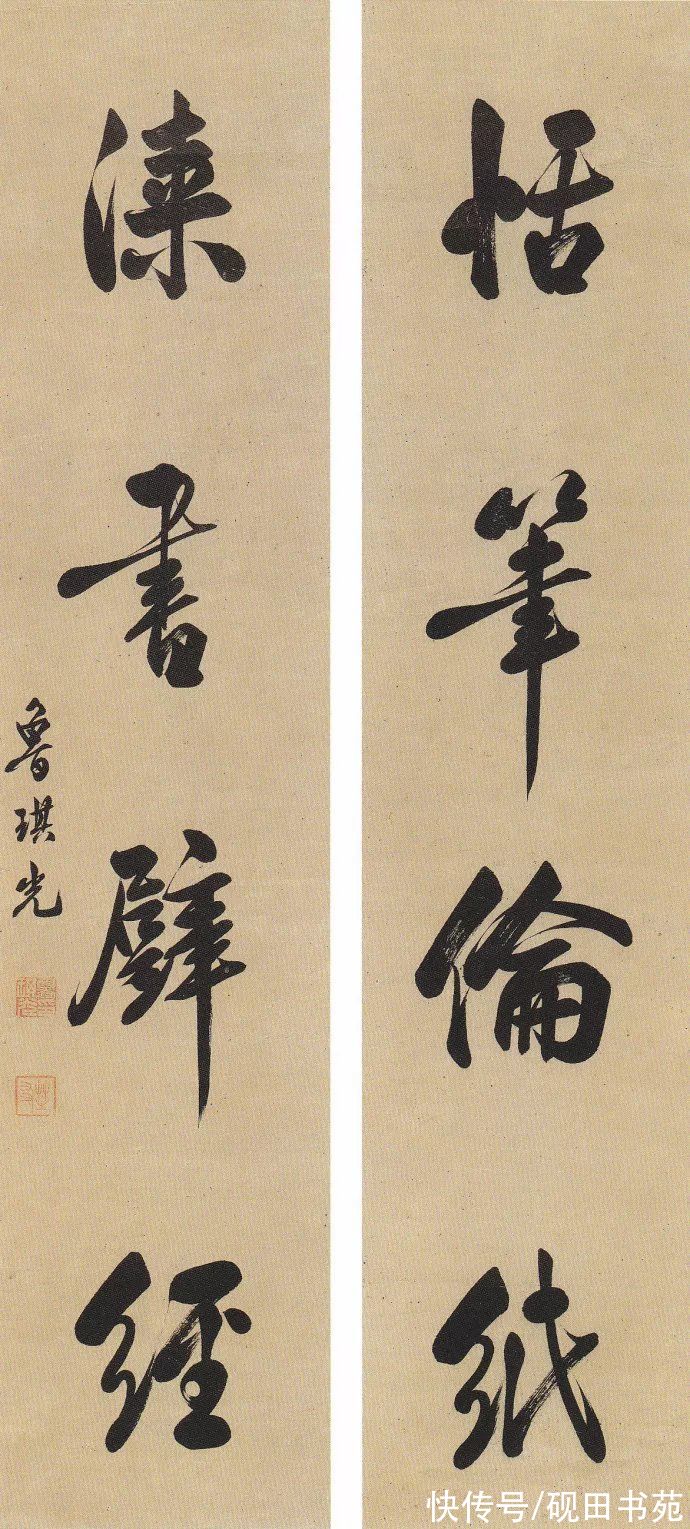 恬筆倫紙
漆書壁經
魯琪光
快传号/砚田书苑